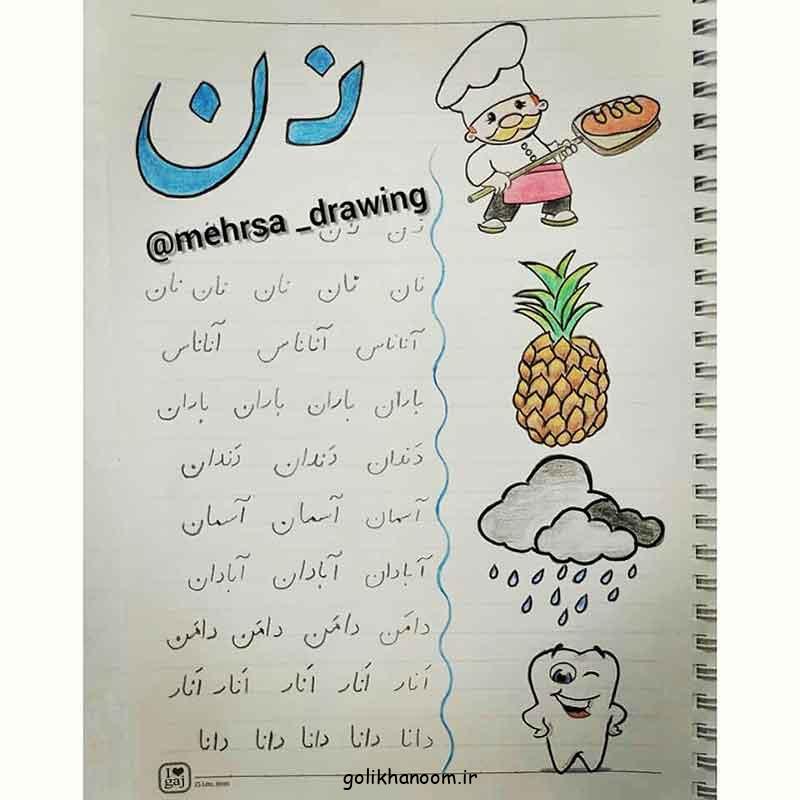 نـ ن
@mehrsa _drawing
نـ ن نـ ن
نان نان نان نان نان
آناناس آناناس آناناس
باران باران باران باران
دَندان دَندان دَندان
آسمان آسمان آسمان
آبادان آبادان آبادان
دامَن دامَن دامَن دامَن
اَنار اَنار اَنار اَنار اَنار
دانا دانا دانا دانا دانا
I♥
gaj
golikhanoom.ir